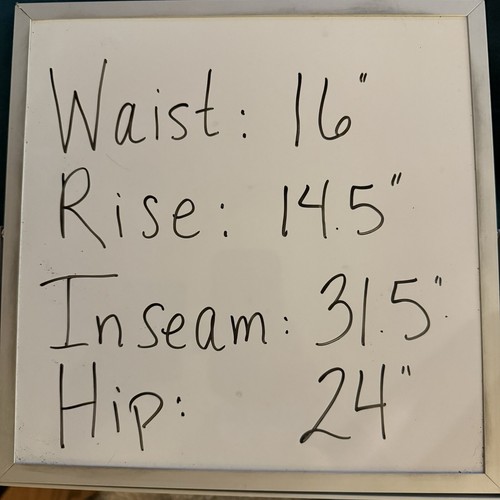 Waist: 16"
Rise: 14.5"
Inseam: 31.5"
Hip: 24"